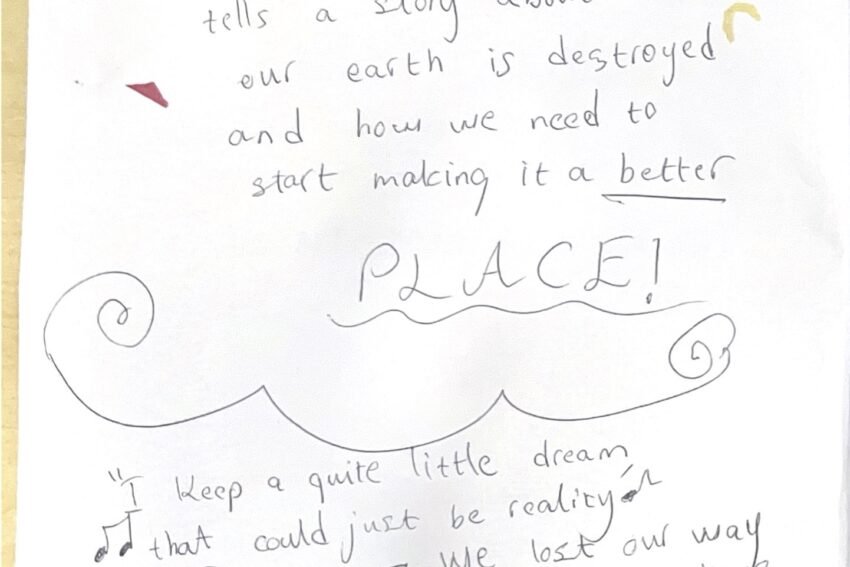 tells a story about
our earth is destroyed
and how we need to
start making it a better
PLACE!
"I keep a quite little dream
that could just be reality
We lost our way